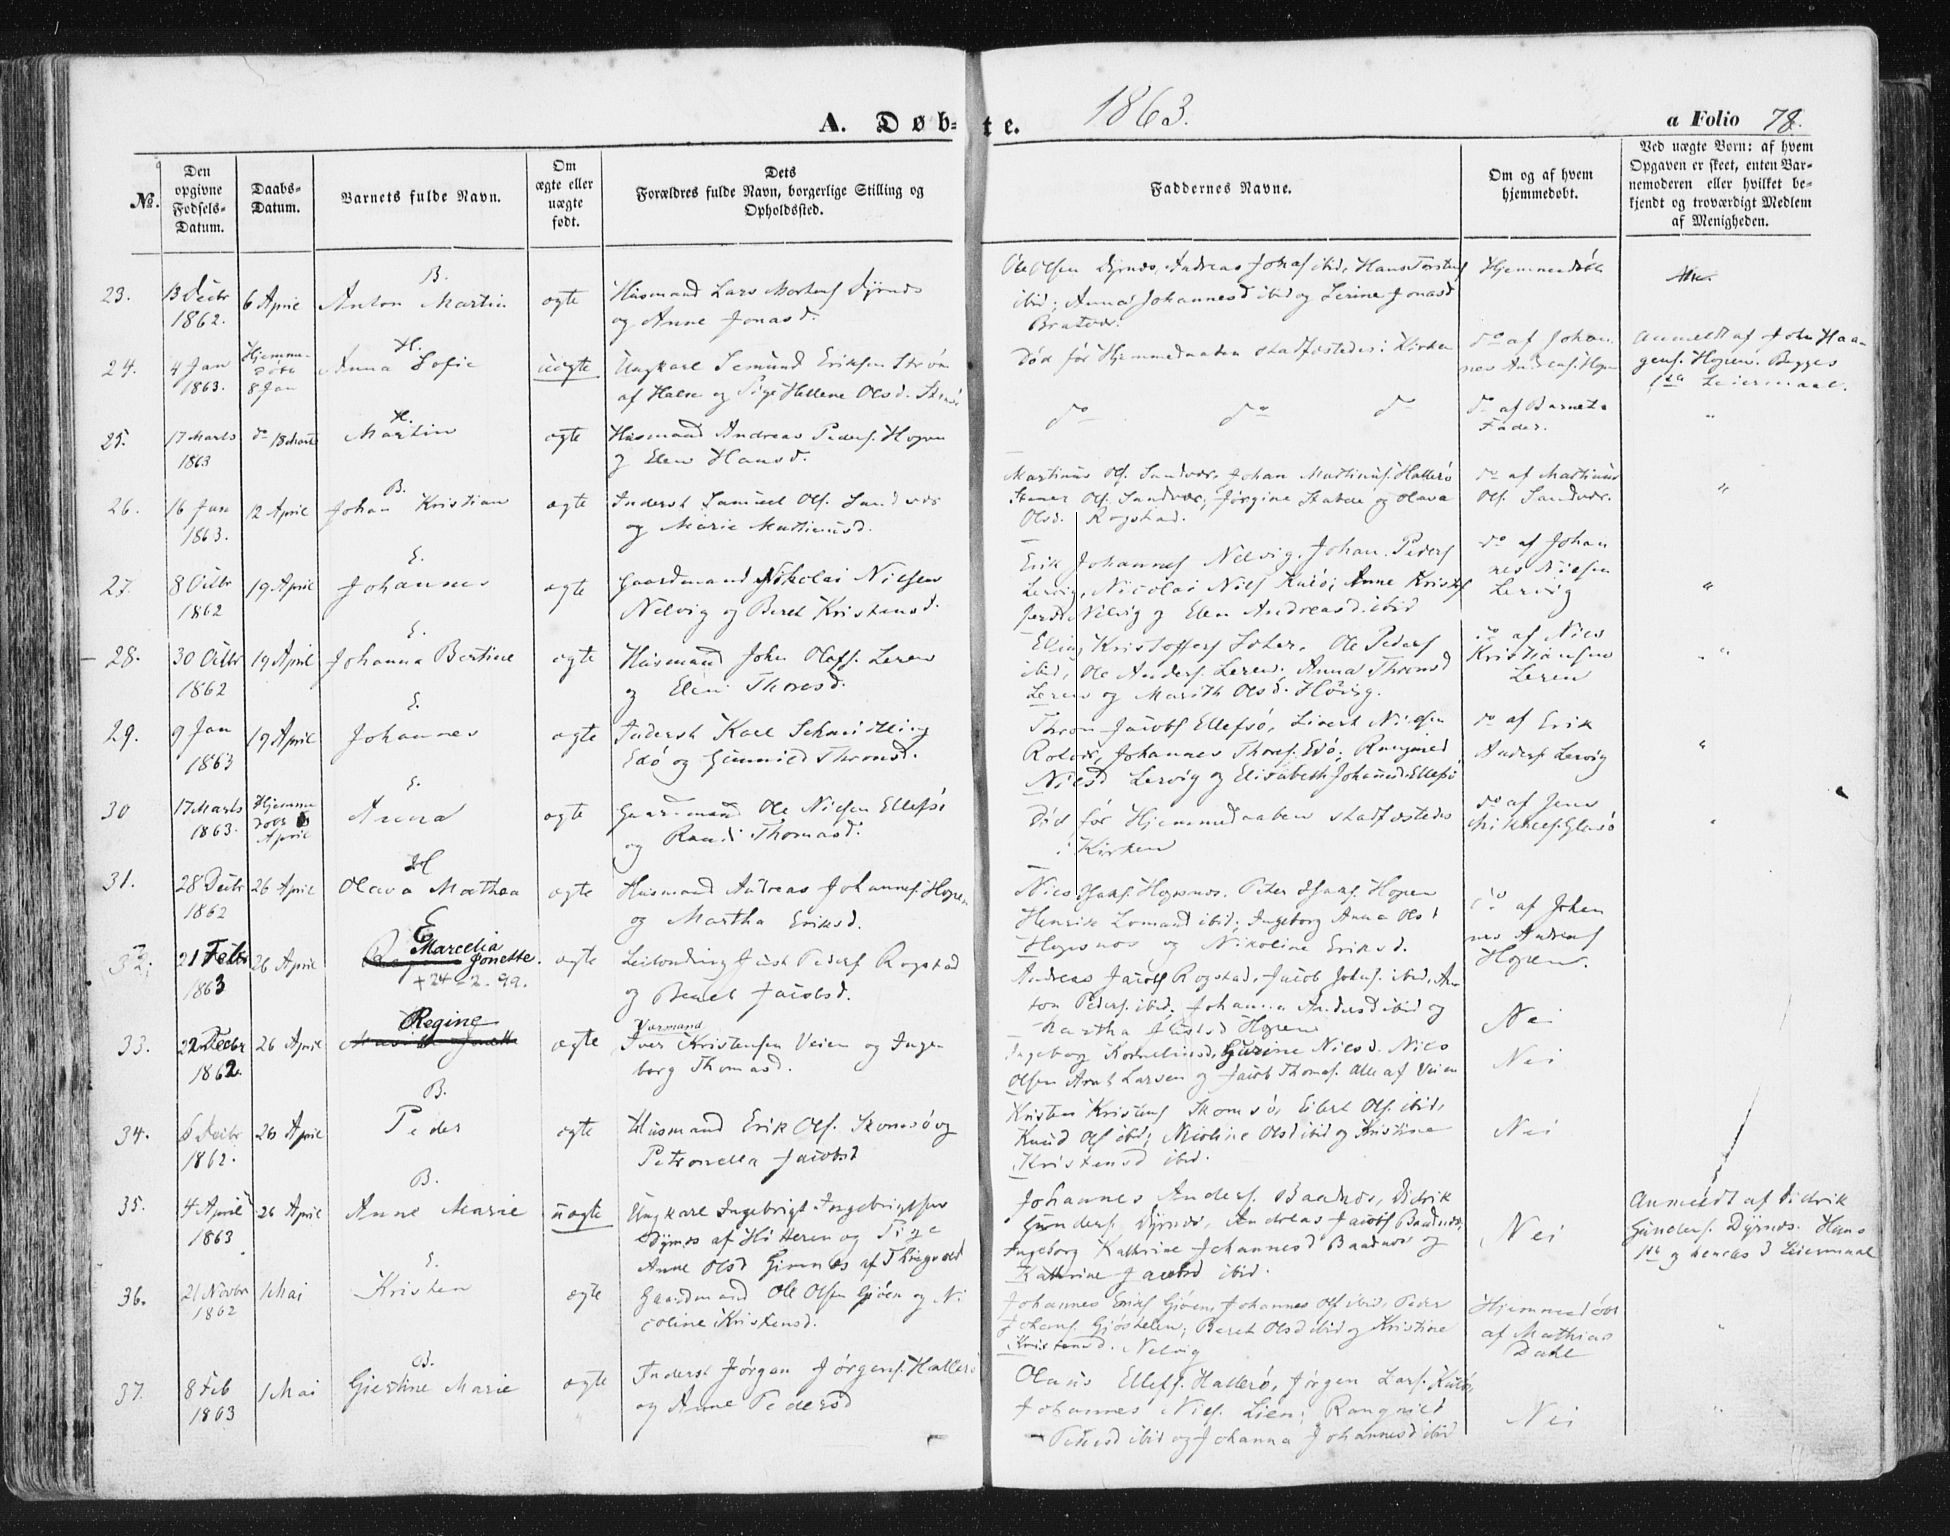 A. Døb- te. 1863. a Folio 78.
No. Den opgivne Fødsels-Datum. Daabs-Datum. Barnets fulde Navn. Om ægte eller uægte født. Dets Forældres fulde Navn, borgerlige Stilling og Opholdssted. Faddernes Navne. Om og af hvem hjemmedøbt. Ved uægte Børn: af hvem Opgaven er skeet, enten Barnemoderen eller hvilket bekjendt og troværdigt Medlem af Menigheden.
B.
23. 13 Decbr 1862. 6 April Anton Martin ægte Husmand Lars Mortens Dyrnes
og Anne Jonasd.
Ole Olsen Dyrnes, Andreas Johans ibid, Hans Torstens
ibid; Anna Johannesd ibid og Serine Jonasd
Bratvær.
Hjemmedøbt
H.
24. 4 Jan 1863. Hjemmedøbt 8 Jan Anna Sofie uægte Ungkarl Semund Eriksen Strøm
af Halsen og Pige Hellene Olsd.
Død før Hjemmedaaben stadfæstedes i Kirken
do af Johannes Andreas. Hopen
Anmeldt af John Haagens. Hopen. Begges
1ste Leiermaal.
H.
25. 17 Marts 1863 do 18 Marts Martin ægte Husmand Andreas Peders. Hopen
og Elen Hansd.
do do do
do af Barnets Fader. "
B.
26. 16 Jan 1863. 12 April Johan Kristian ægte Inderst Samuel Ols. Sandvær
og Marie Martinusd.
Martinus Ols. Sandvær, Johan Martinus. Hallerø
Stener Ols. Sandvær, Jørgine Stabel og Olava
Olsd. Rogstad.
do af Martinus Ols. Sandvær. "
E.
27. 8 Octbr 1862 19 April Johannes ægte Gaardmand Nikolai Nielsen
Nelvig og Beret Kristensd.
Erik Johannes Nelvig. Johan Peders
Lervig, Nicolai Niels Kulø; Anne Kristofferd
Nelvig og Elen Andreasd. ibid
do af Johannes Nielsen Lervig "
E.
28. 30 Octbr 1862 19 April Johanna Bertine ægte Husmand John Olofs. Leren
og Elen Thoresd.
Elling Kristoffers Sæter. Ole Peders
ibid, Ole Anders. Leren; Anna Thronsd
Leren og Marith Olsd. Høivig.
do af Niels Kristiansen Leren "
E.
29. 9 Jan 1863 19 April Johannes ægte Inderst Karl Schmidtling
Edø og Gunnild Thronsd.
Thron Jacobs Ellefsø, Sivert Nielsen
Rolvær, Johannes Thores. Edø; Rangnild
Nielsd Lervig og Elisabeth Johansd. Ellefsø
do af Erik Anders Lervig "
E.
30 17 Marts 1863. Hjemmedøbt April Anna ægte Gaardmand Ole Nielsen Ellefsø
og Randi Thomasd.
Død før Hjemmedaaben stadfæstedes
i Kirken
do af Jens Mikkels. Glasø
H
31. 28 Decbr 1862 26 April Olava Mathea ægte Husmand Andreas Johannes. Hopen
og Martha Eriksd.
Niels Isaks. Hopsnes. Peter Isaks. Hopen
Henrik Lomand ibid; Ingeborg Anna Olsd
Hopsnes og Nikoline Eriksd.
do af Johannes Andreas Hopen.
E
32. 21 Febr 1863 26 April Marcelia Jonette. ægte Leilending Just Peders Rogstad
+24-2.99.
og Beret Jacobsd.
Andreas Jacobs Rogstad, Jacob Johs. ibid, Anton
Peders. ibid; Johanna Andersd ibid og
Martha Justsd Hopen
Nei
33. 22 Decbr 1862. 26 April Regine ægte Varmand Iver Kristensen Veien og Ingeborg Thomasd.
Ingeborg Korneliusd, Gurine Nielsd. Niels
Olsen Arnt Larsen og Jacob Thomas. alle af Veien
Nei
B.
34. 6 Decbr 1862. 26 April Peder ægte Husmand Erik Ols. Skomsø og
Petronella Jacobsd
Kristen Kristens Skomsø, Eilert Ols. ibid,
Knud Ols ibid; Nicoline Olsd ibid og Kristine
Kristensd ibid.
Nei
B.
35. 4 April 1863 26 April Anne Marie uægte Ungkarl Ingebrigt Ingebrigtsen
Dyrnes af Hitteren og Pige
Anne Olsd Gimnes af Thingvold
Johannes Anders. Baadnes, Didrik
Gunders. Dyrnes, Andreas Jacobs Baadnes,
Ingeborg Kathrine Johannesd Baadnes og
Kathrine Jacobsd ibid.
Nei
Anmeldt af Didrik
Gunders. Dyrnes. Hans
1ste og hendes 3 Leiermaal
E.
36. 21 Novbr 1862 1 Mai Kristen ægte Gaardmand Ole Olsen Gjøen og Nicoline Kristensd.
Johannes Eriks Gjøen, Johannes Ols ibid, Peder
Johans. Gjøstølen; Beret Olsd ibid og Kristine
Kristensd. Nelvig
Hjemmedøbt af Mathias Dahl "
B.
37. 8 Feb 1863 1 Mai Giertine Marie ægte Inderst Jørgen Jørgens. Hallerø
og Anne Pedersd
Olaus Ellefs. Hallerø, Jørgen Lars. Kulø,
Johannes Niels. Lien; Rangnild
Pedersd ibid og Johanna Johannesd ibid
Nei "